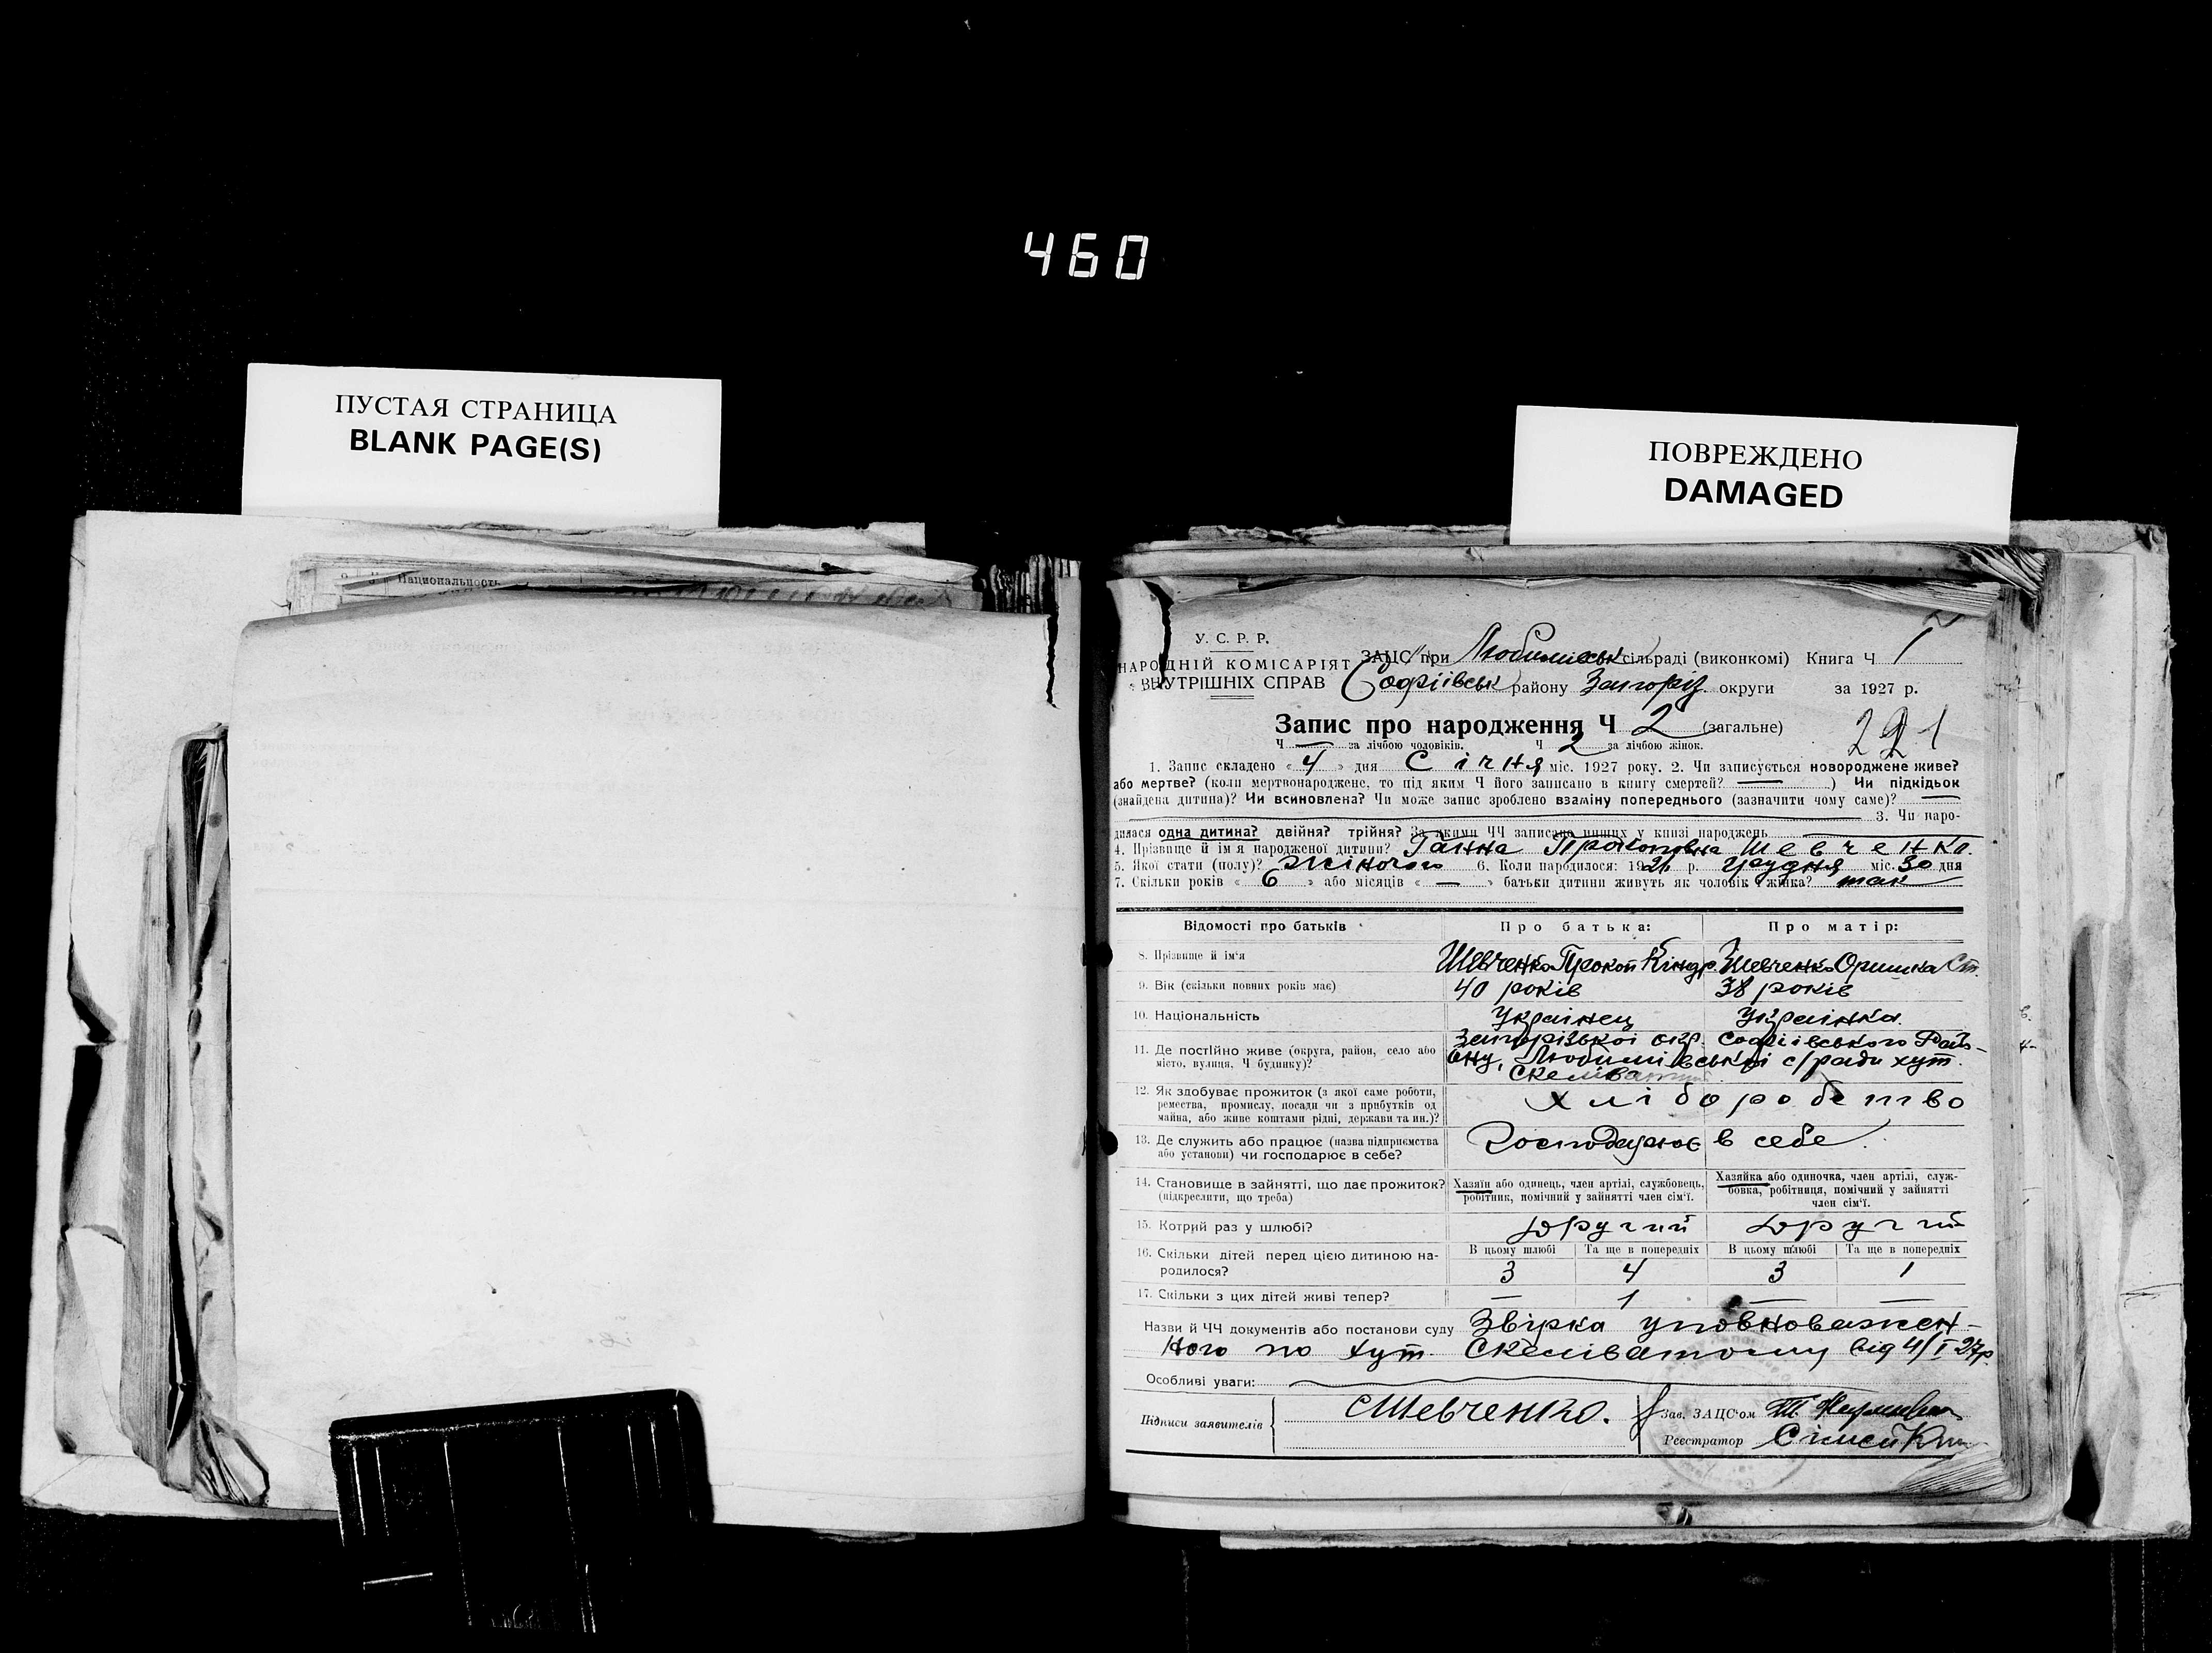 460
ПУСТАЯ СТРАНИЦА
BLANK PAGE(S)
ПОВРЕЖДЕНО
DAMAGED
Национальность
У. С. Р. Р.
НАРОДНІЙ КОМІСАРІЯТ
ВНУТРІШНІХ СПРАВ
ЗАЦС при Любимівськ сільраді (виконкомі) Книга Ч 1
Софіївськ району Запоріз. округи за 1927 р.
Запис про народження Ч 2 (загальне)
221
Ч — за лічбою чоловіків. Ч 2 за лічбою жінок.
1. Запис складено « 4 » дня Січня міс. 1927 року. 2. Чи записується новороджене живе?
або мертве? (коли мертвонароджене, то під яким Ч його записано в книгу смертей? — ) Чи підкідьок
(знайдена дитина)? Чи всиновлена? Чи може запис зроблено взаміну попереднього (зазначити чому саме)? —
3. Чи наро-
дилася одна дитина? двійня? трійня? За якими ЧЧ записано инших у книзі народжень
4. Прізвище й ім'я народженої дитини? Ганна Прокоповна Шевченко.
5. Якої стати (полу)? жіночого 6. Коли народилося: 1926 р. Грудня міс. 30 дня
7. Скільки років « 6 » або місяців « — » батьки дитини живуть як чоловік і жінка? так
Відомості про батьків Про батька: Про матір:
8. Прізвище й ім'я Шевченко Прокоп Кіндр. Шевченко Оришка Ст.
9. Вік (скільки повних років має) 40 років 38 років
10. Національність Українец Українка.
11. Де постійно живе (округа, район, село або
місто, вулиця, Ч будинку)?
Запорізької окр. Софіївського Рай-
ону, Любимівської с/ради хут.
Скелюватий
12. Як здобуває прожиток (з якої саме роботи,
ремества, промислу, посади чи з прибутків од
майна, або живе коштами рідні, держави та ин.)?
Хліборобство
13. Де служить або працює (назва підприємства
або установи) чи господарює в себе?
Господарює в себе.
14. Становище в зайнятті, що дає прожиток?
(підкреслити, що треба)
Хазяїн або одинець, член артілі, службовець,
робітник, помічний у зайнятті член сім'ї.
Хазяйка або одиночка, член артілі, служ-
бовка, робітниця, помічний у зайнятті
член сім'ї.
15. Котрий раз у шлюбі? другий другий
16. Скільки дітей перед цією дитиною на-
родилося?
В цьому шлюбі Та ще в попередніх В цьому шлюбі Та ще в попередніх
3 4 3 1
17. Скільки з цих дітей живі тепер? — 1 — —
Назви й ЧЧ документів або постанови суду Звірка уповноважен-
ного по хут. Скеліватому від 4/I 27р.
Особливі уваги:
Підписи заявителів СШевченко.
Зав. ЗАЦС'ом
Реєстратор